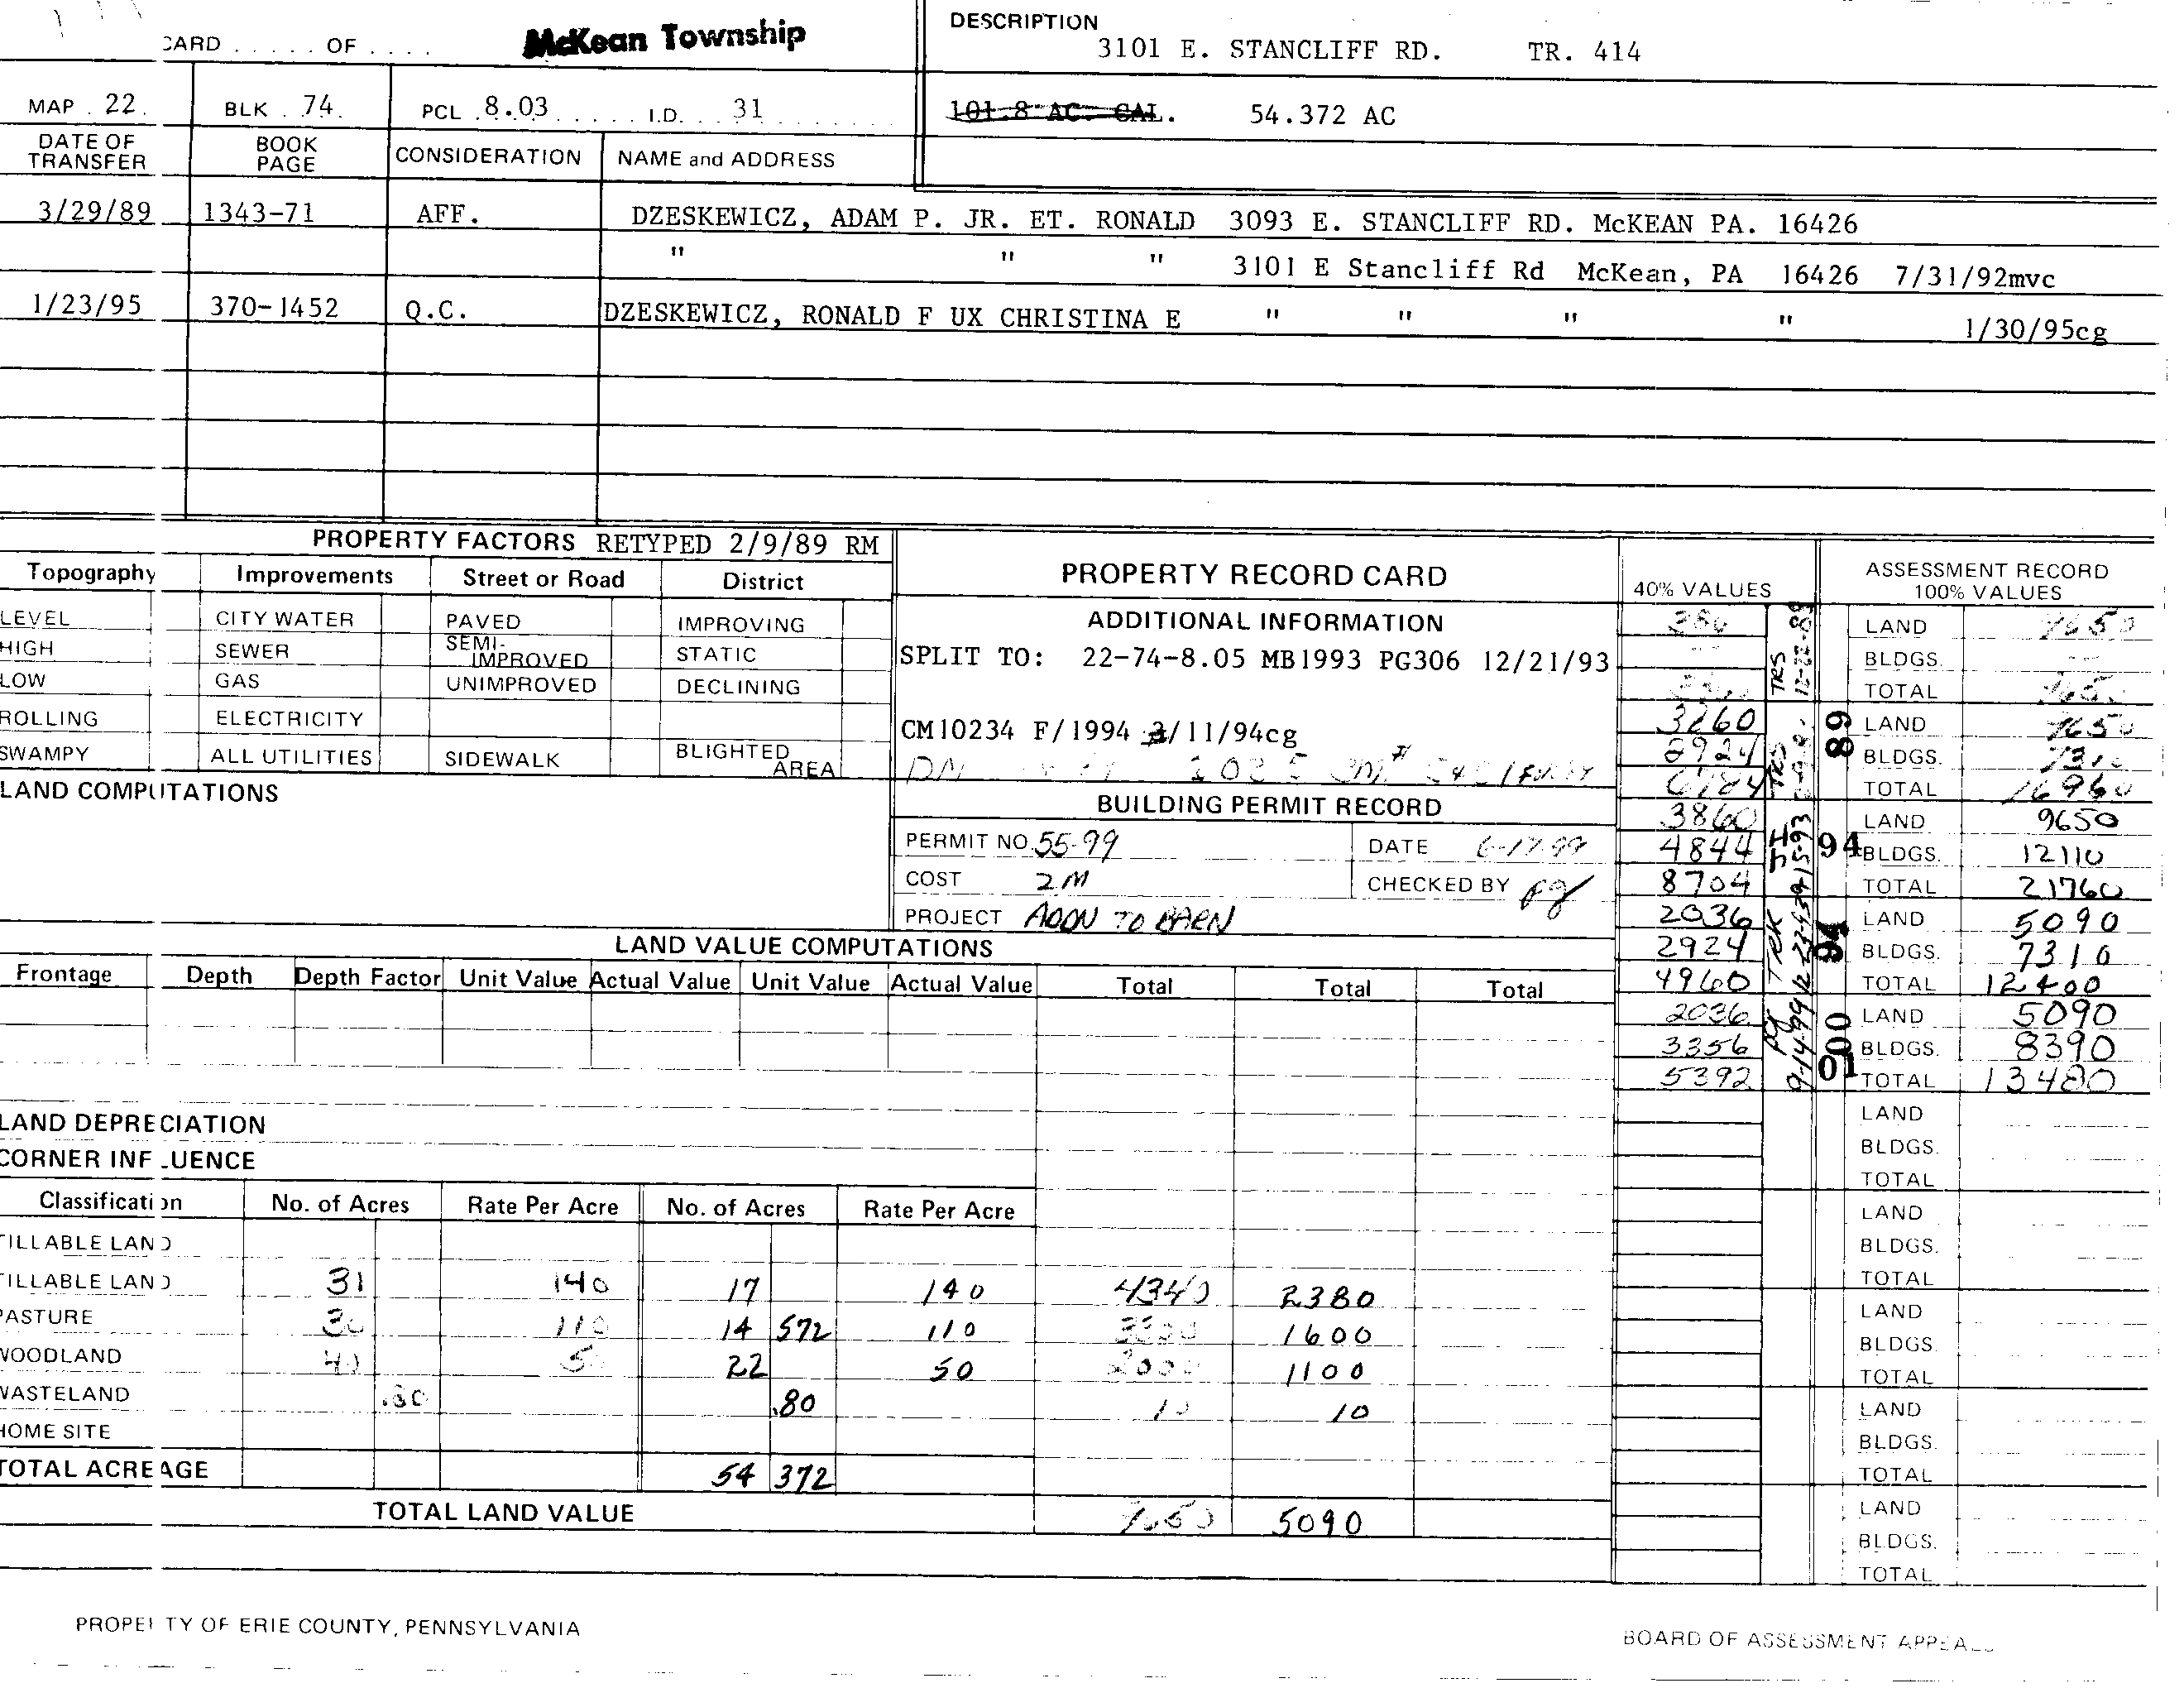 CARD . . . . . OF . . . . McKean Township
DESCRIPTION
3101 E. STANCLIFF RD. TR. 414
MAP . 22. BLK . 74. PCL . 8.03 . . . . . I.D. . . 31 . . . . . . . .
101.8 AC. CAL. 54.372 AC
DATE OF TRANSFER BOOK PAGE CONSIDERATION NAME and ADDRESS
3/29/89 1343-71 AFF. DZESKEWICZ, ADAM P. JR. ET. RONALD 3093 E. STANCLIFF RD. McKEAN PA. 16426
" " " 3101 E Stancliff Rd McKean, PA 16426 7/31/92mvc
1/23/95 370-1452 Q.C. DZESKEWICZ, RONALD F UX CHRISTINA E " " " " 1/30/95cg
PROPERTY FACTORS RETYPED 2/9/89 RM
Topography Improvements Street or Road District
LEVEL CITY WATER PAVED IMPROVING
HIGH SEWER SEMI-IMPROVED STATIC
LOW GAS UNIMPROVED DECLINING
ROLLING ELECTRICITY
SWAMPY ALL UTILITIES SIDEWALK BLIGHTED AREA
PROPERTY RECORD CARD
ADDITIONAL INFORMATION
SPLIT TO: 22-74-8.05 MB1993 PG306 12/21/93
CM10234 F/1994 /11/94cg
BUILDING PERMIT RECORD
PERMIT NO. 55-99 DATE 6-17-99
COST 2M CHECKED BY
PROJECT ADDN TO BARN
40% VALUES ASSESSMENT RECORD 100% VALUES
LAND
BLDGS.
TOTAL
TRS 12-22-88
89 LAND 9650
2924 BLDGS. 7310
TOTAL 16960
3860 LAND 9650
4844 94 BLDGS. 12110
8704 TOTAL 21760
2036 LAND 5090
2924 94 BLDGS. 7310
4960 TOTAL 12400
TRK
2036 LAND 5090
3356 00 BLDGS. 8390
5392 01 TOTAL 13480
9-14-99
LAND
BLDGS.
TOTAL
LAND
BLDGS.
TOTAL
LAND
BLDGS.
TOTAL
LAND
BLDGS.
TOTAL
LAND
BLDGS.
TOTAL
LAND COMPUTATIONS
LAND VALUE COMPUTATIONS
Frontage Depth Depth Factor Unit Value Actual Value Unit Value Actual Value Total Total Total
LAND DEPRECIATION
CORNER INF LUENCE
Classification No. of Acres Rate Per Acre No. of Acres Rate Per Acre
TILLABLE LAND
TILLABLE LAND 31 140 17 140 4340 2380
PASTURE 30 110 14 572 110 1600
WOODLAND 40 22 50 2000 1100
WASTELAND .80 .80 10 10
HOME SITE
TOTAL ACREAGE 54 372
TOTAL LAND VALUE 9650 5090
PROPERTY OF ERIE COUNTY, PENNSYLVANIA
BOARD OF ASSESSMENT APPEALS